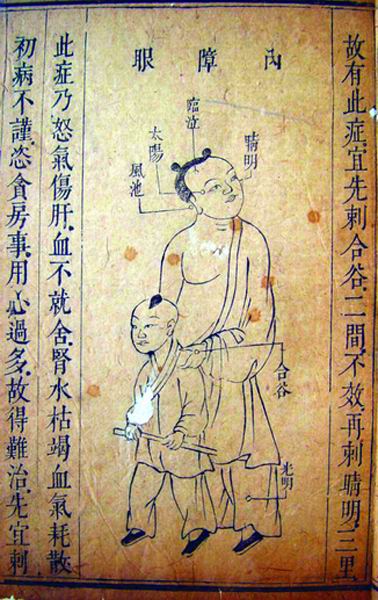 故有此症、宜先刺合谷、二間、不效、再刺睛明、三里
內障眼
睛明
臨泣
太陽
風池
合谷
光明
此症乃怒氣傷肝、血不就舍、腎水枯竭血氣耗散
初病不謹、恣貪房事、用心過多、故得難治、先宜刺